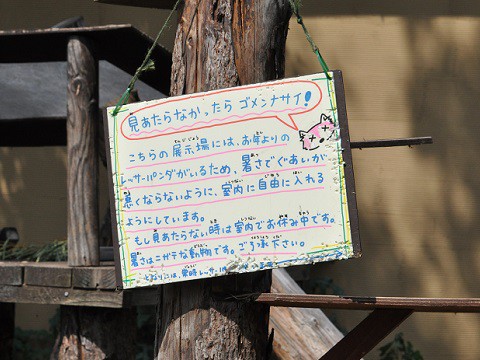 見あたらなかったら ゴメンナサイ!
こちらの展示場には、お年よりの
レッサーパンダがいるため、暑さでぐあいが
悪くならないように、室内に自由に入れる
ようにしています。
もし見あたらない時は室内でお休み中です。
暑さはニガテな動物です。ご了承下さい。